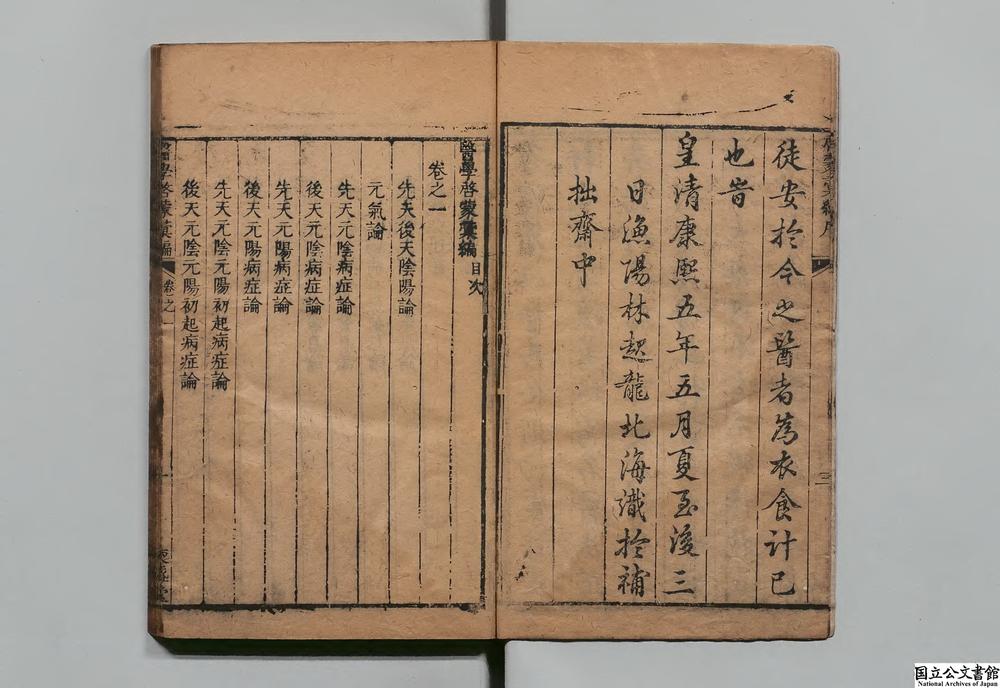 徒安於今之醫者為衣食計已
也旹
皇清康熙五年五月夏至後三
日漁陽林起龍北海識於補
拙齋中
醫學啓蒙彙編目次
卷之一
先天後天陰陽論
元氣論
先天元陰病症論
後天元陰病症論
先天元陽病症論
後天元陽病症論
先天元陰元陽初起病症論
後天元陰元陽初起病症論
醫學啓蒙彙編
卷之一
国立公文書館
National Archives of Japan